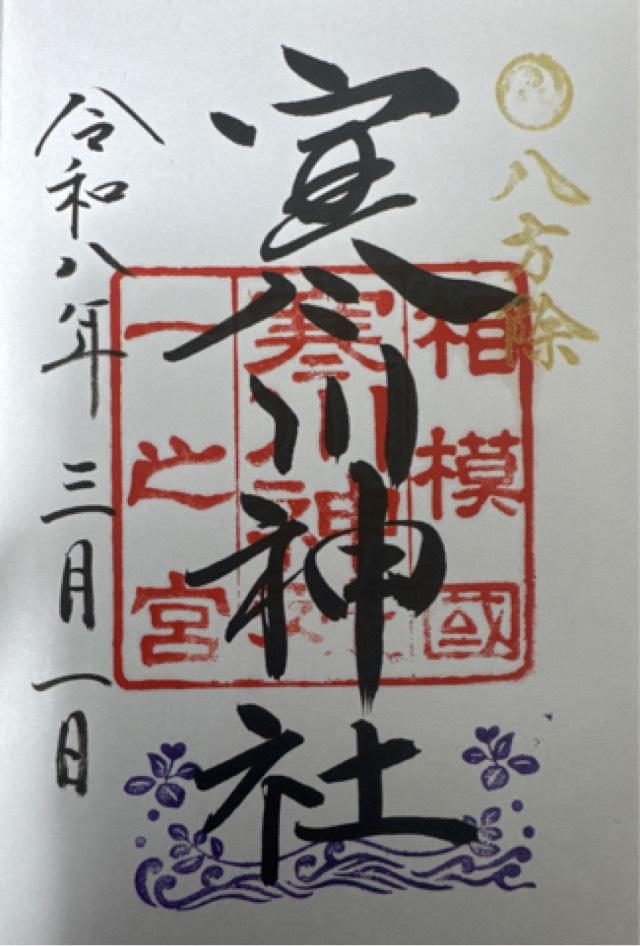 八方除
寒川神社
相模國
一之宮
寒川神社
令和八年 三月一日